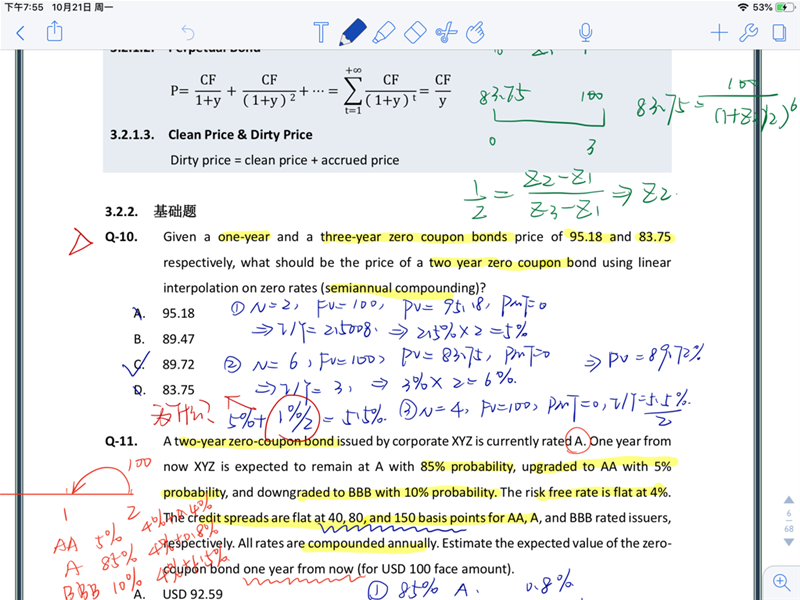 下午7:55 10月21日 周一
53%
3.2.1.2. Perpetual Bond
P= CF/1+y + CF/(1+y)² + ⋯ = ∑ t=1 +∞ CF/(1+y)ᵗ = CF/y
83.75 100
0 3
83.75 = 100/(1+Z3/2)^6
3.2.1.3. Clean Price & Dirty Price
Dirty price = clean price + accrued price
1/2 = Z2-Z1/Z3-Z1 ⇒ Z2
3.2.2. 基础题
Q-10. Given a one-year and a three-year zero coupon bonds price of 95.18 and 83.75
respectively, what should be the price of a two year zero coupon bond using linear
interpolation on zero rates (semiannual compounding)?
A. 95.18
① N=2, FV=100, PV=95.18, PMT=0
B. 89.47
⇒ I/Y=2.5008. ⇒ 2.5%×2=5%
C. 89.72
② N=6, FV=100, PV=83.75, PMT=0 ⇒ PV=89.72%
D. 83.75
⇒ I/Y=3, ⇒ 3%×2=6%.
为什么? 5%+1%/2=5.5%. ③ N=4, FV=100, PMT=0, I/Y=5.5%/2
Q-11. A two-year zero-coupon bond issued by corporate XYZ is currently rated A. One year from
now XYZ is expected to remain at A with 85% probability, upgraded to AA with 5%
probability, and downgraded to BBB with 10% probability. The risk free rate is flat at 4%.
The credit spreads are flat at 40, 80, and 150 basis points for AA, A, and BBB rated issuers,
respectively. All rates are compounded annually. Estimate the expected value of the zero-
coupon bond one year from now (for USD 100 face amount).
100
1 2
AA 5%
A 85% 4%+0.8%
BBB 10% 4%+1.5%
A. USD 92.59
① 85% A. 0.8%
6
68